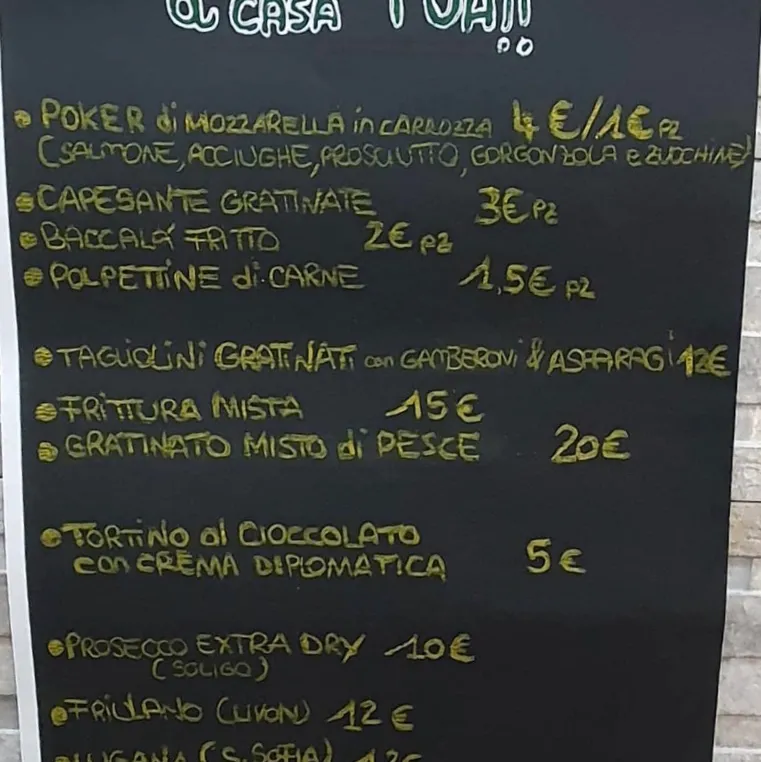 a CASA TUA!!
• POKER di MOZZARELLA in CARROZZA 4€/1€ PZ
(SALMONE, ACCIUGHE, PROSCIUTTO, GORGONZOLA e ZUCCHINE)
• CAPESANTE GRATINATE 3€ PZ
• BACCALÁ FRITTO 2€ PZ
• POLPETTINE di CARNE 1,5€ PZ
• TAGLIOLINI GRATINATI con GAMBERONI & ASPARAGI 12€
• FRITTURA MISTA 15€
• GRATINATO MISTO di PESCE 20€
• TORTINO al CIOCCOLATO
con CREMA DIPLOMATICA 5€
• PROSECCO EXTRA DRY 10€
(SOLIGO)
• FRIULANO (LIVON) 12€
• LUGANA (S. SOFIA) 12€